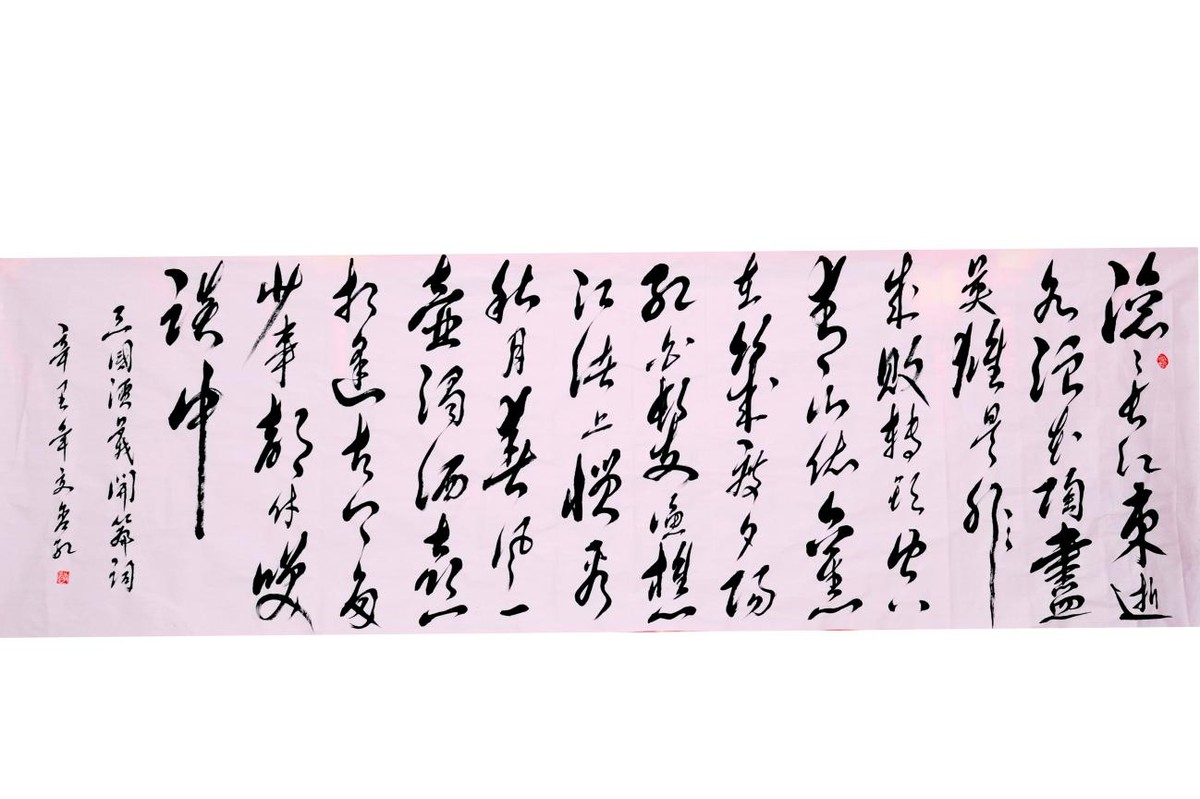 滾々长江東逝
水浪花淘盡
英雄是非
成敗轉頭空
青山依舊
在幾度夕陽
紅白髮漁樵
江渚上慣看
秋月春風一
壺濁酒喜
相逢古今多
少事都付笑
談中
三國演義開篇詞
辛丑年文